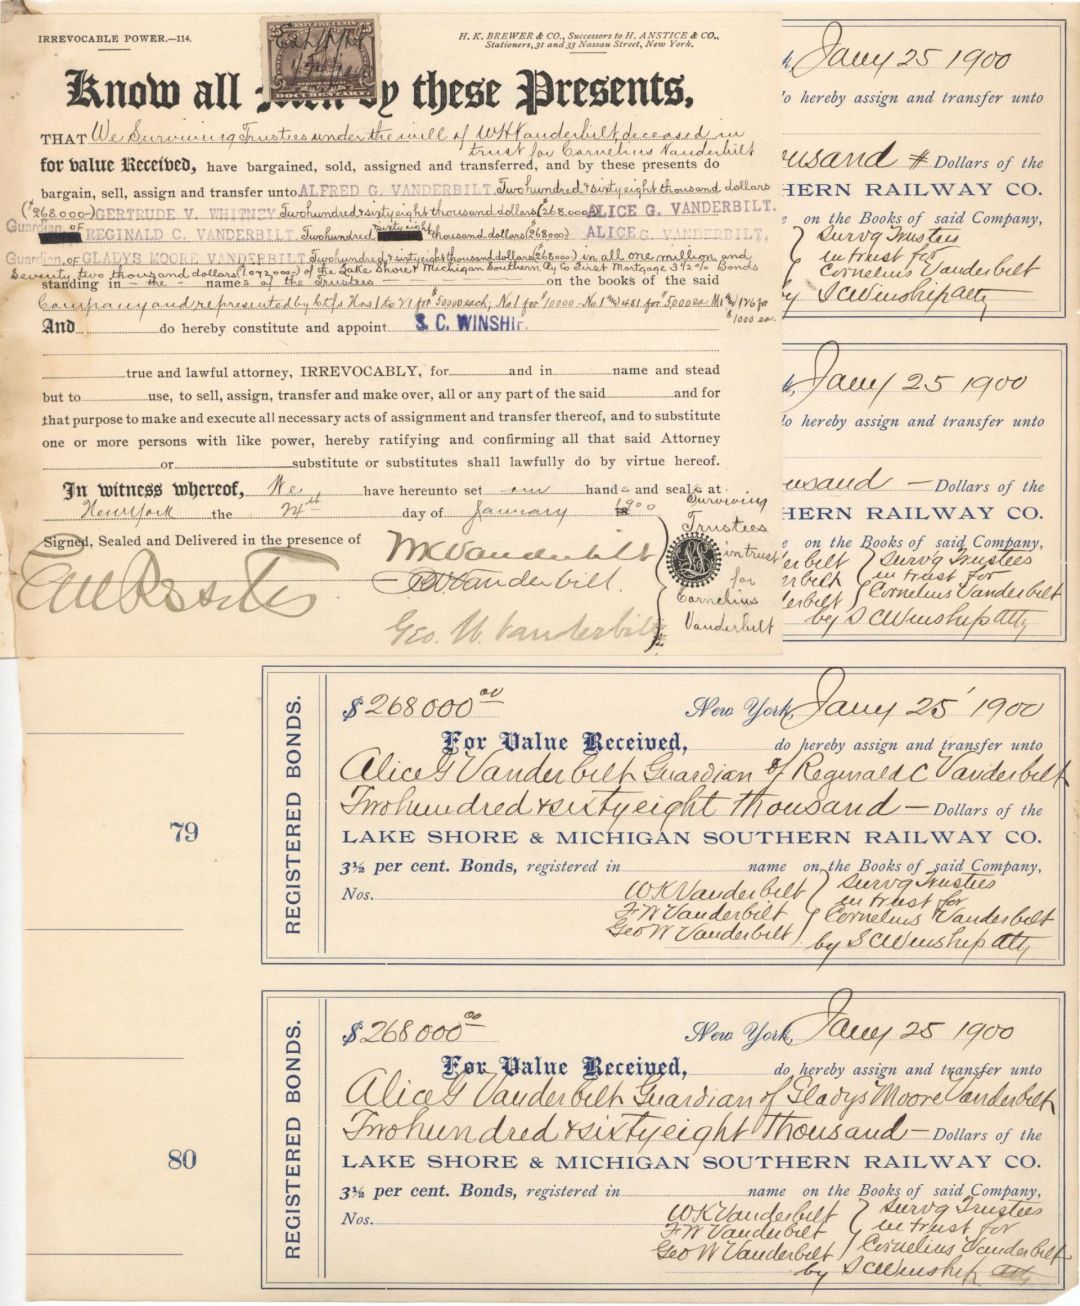 IRREVOCABLE POWER.—114.
H. K. BREWER & CO., Successors to H. ANSTICE & CO.,
Stationers, 31 and 33 Nassau Street, New York.
DOCUMENTARY
Know all Men by these Presents,
THAT We Surviving Trustees under the will of W H Vanderbilt, deceased in
trust for Cornelius Vanderbilt
for value Received, have bargained, sold, assigned and transferred, and by these presents do
bargain, sell, assign and transfer unto ALFRED G. VANDERBILT. Two hundred & sixty eight thousand dollars
($268.000—) GERTRUDE V. WHITNEY Two hundred & sixty eight thousand dollars ($268.000) ALICE G. VANDERBILT.
Guardian of REGINALD C. VANDERBILT. Two hundred sixty eight thousand dollars ($268000) ALICE G. VANDERBILT,
Guardian of GLADYS MOORE VANDERBILT Two hundred & sixty eight thousand dollars ($268000) in all one million and
Seventy two thousand dollars (1.072,000—) of the Lake Shore & Michigan Southern Ry Co First Mortgage 3½% Bonds
standing in — the — names of the Trustees on the books of the said
Company and represented by Ctfs Nos 1 to 21 for $50000 each; No 1 for $10000 — No. 1 481 for $5,000 ea. M1 176 for
$1000 ea.
And do hereby constitute and appoint S. C. WINSHIP.
true and lawful attorney, IRREVOCABLY, for and in name and stead
but to use, to sell, assign, transfer and make over, all or any part of the said and for
that purpose to make and execute all necessary acts of assignment and transfer thereof, and to substitute
one or more persons with like power, hereby ratifying and confirming all that said Attorney
or substitute or substitutes shall lawfully do by virtue hereof.
In witness whereof, We have hereunto set our hands and seals at
New York the 24th day of January 1900
Signed, Sealed and Delivered in the presence of
W K Vanderbilt
F W Vanderbilt.
Geo. W. Vanderbilt
Surviving
Trustees
in trust
for
Cornelius
Vanderbilt
Jany 25 1900
do hereby assign and transfer unto
usand # Dollars of the
HERN RAILWAY CO.
on the Books of said Company,
Survg Trustees
in trust for
Cornelius Vanderbilt
by S C Winship atty
Jany 25 1900
do hereby assign and transfer unto
usand — Dollars of the
HERN RAILWAY CO.
e on the Books of said Company,
erbilt Survg Trustees
erbilt in trust for
derbilt Cornelius Vanderbilt
by S C Winship atty
79
REGISTERED BONDS.
$268000.00 New York, Jany 25 1900
For Value Received, do hereby assign and transfer unto
Alice G Vanderbilt Guardian of Reginald C Vanderbilt
Two hundred & sixty eight thousand — Dollars of the
LAKE SHORE & MICHIGAN SOUTHERN RAILWAY CO.
3½ per cent. Bonds, registered in name on the Books of said Company,
Nos. W K Vanderbilt Survg Trustees
F W Vanderbilt in trust for
Geo W Vanderbilt Cornelius Vanderbilt
by S C Winship atty
80
REGISTERED BONDS.
$268000.00 New York, Jany 25 1900
For Value Received, do hereby assign and transfer unto
Alice G Vanderbilt Guardian of Gladys Moore Vanderbilt
Two hundred & sixty eight thousand — Dollars of the
LAKE SHORE & MICHIGAN SOUTHERN RAILWAY CO.
3½ per cent. Bonds, registered in name on the Books of said Company,
Nos. W K Vanderbilt Survg Trustees
F W Vanderbilt in trust for
Geo W Vanderbilt Cornelius Vanderbilt
by S C Winship atty